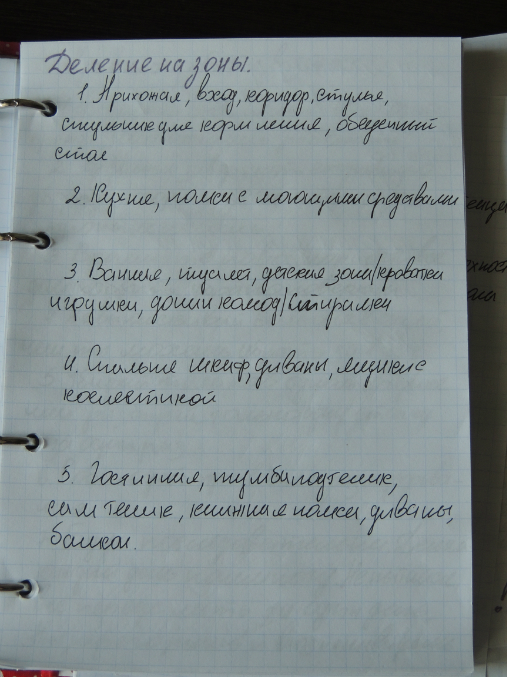 Деление на зоны.
1. Прихожая, вход, коридор, стулья,
стульчик для кормления, обеденный
стол
2. Кухня, полки с моющими средствами
3. Ванная, туалет, детские зона/кроватки
игрушки, комод/стиралки
4. Спальня шкаф, диваны, ящики с
косметикой
5. Гостинная, тумба под телик,
сам телик, книжная полка, диваны,
балкон.